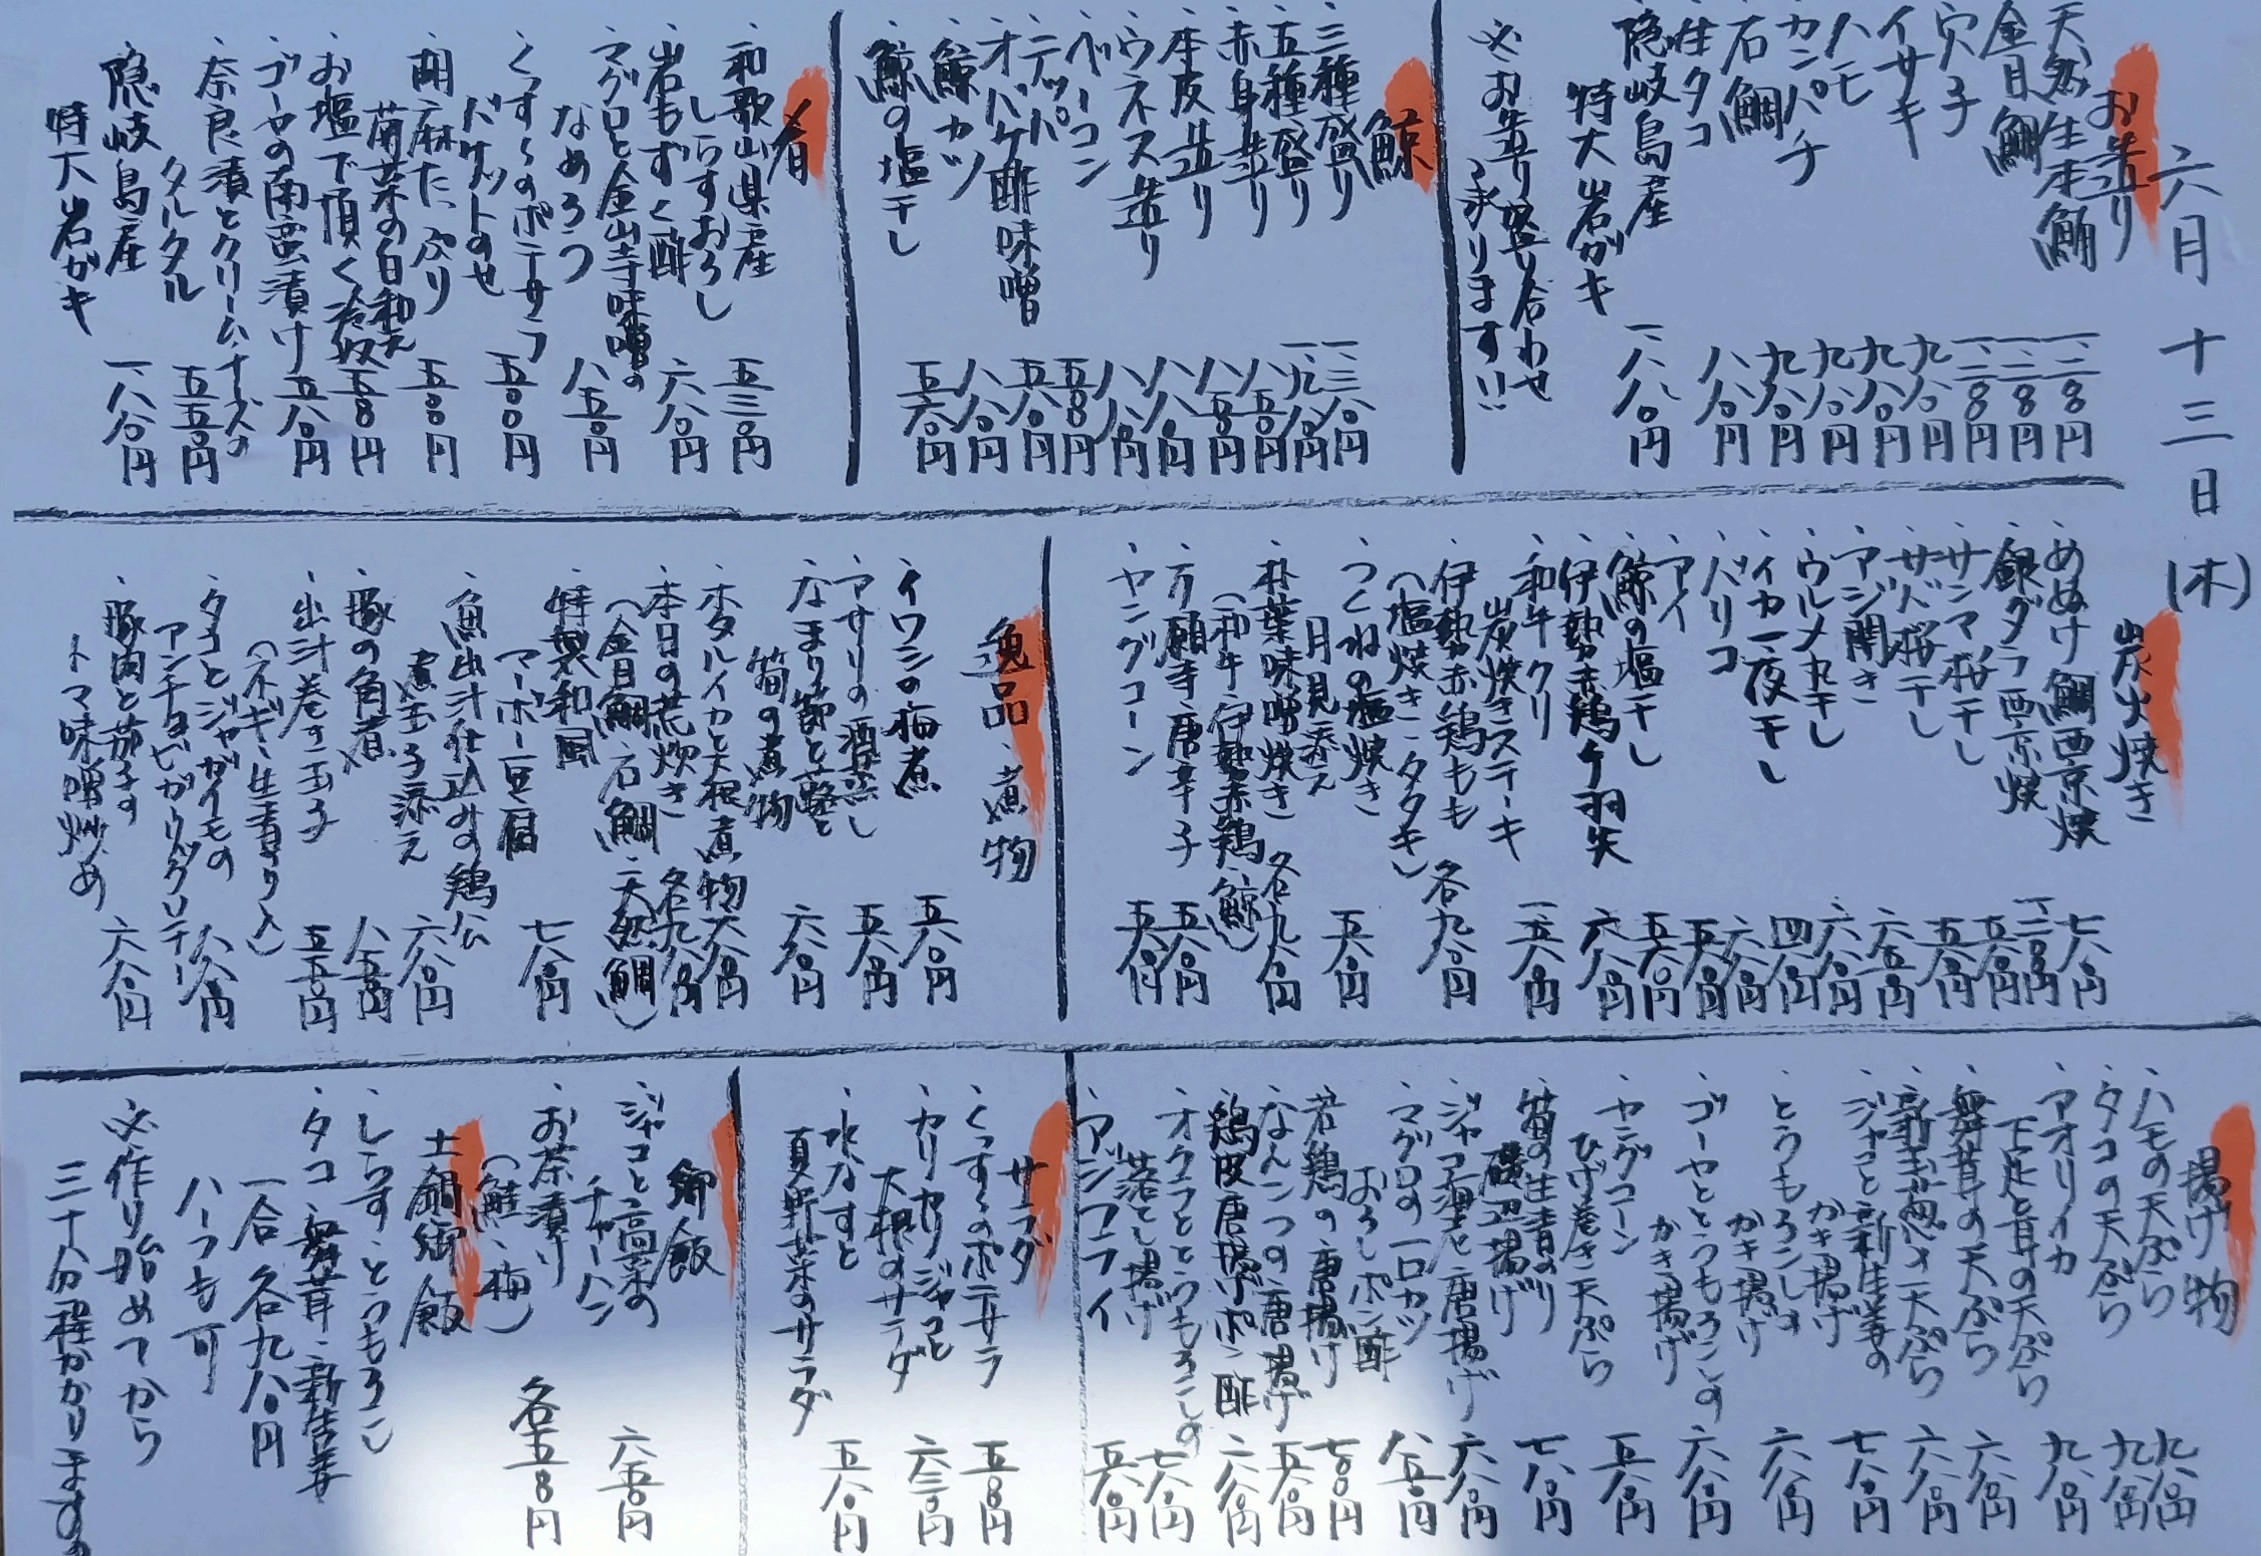 六月十三日(木)
お造り
天然生本鮪 一、二〇〇円
金目鯛 一、二〇〇円
穴子 一、二〇〇円
イサキ 九八〇円
ハモ 九八〇円
カンパチ 九八〇円
石鯛 九八〇円
生タコ 八八〇円
隠岐島産
特大岩ガキ 一、八八〇円
※お造り盛り合わせ
承ります!!
鯨
三種盛り 一、三八〇円
五種盛り 一、九八〇円
赤身造り 八五〇円
本皮造り 八五〇円
ウネス造り 八八〇円
ベーコン 八八〇円
テッパ 五五〇円
オバケ酢味噌 五八〇円
鯨カツ 八八〇円
鯨の塩干し 五六〇円
肴
和歌山県産
しらすおろし 五三〇円
岩もずく酢 六八〇円
マグロと金山寺味噌の
なめろう 八五〇円
くっすぅのポテサラ
バケットのせ 五〇〇円
胡麻たっぷり
菊菜の白和え 五〇〇円
お塩で頂く冷奴 五五〇円
ゴーヤの南蛮漬け 五八〇円
奈良漬とクリームチーズの
タルタル 五五〇円
隠岐島産
特大岩ガキ 一、八八〇円
炭火焼き
めぬけ鯛西京焼 七八〇円
銀ダラ西京焼 一、二〇〇円
サンマ桜干し 五八〇円
サバ桜干し 五八〇円
アジ開き 六五〇円
ウルメ丸干し 六八〇円
イカ一夜干し 四八〇円
バリコ 六八〇円
アイ 五八〇円
鯨の塩干し 五六〇円
伊勢赤鶏手羽先 六八〇円
和牛クリ
炭焼きステーキ 一、五八〇円
伊勢赤鶏もも 各九八〇円
(塩焼き・タタキ)
つくねの塩焼き
月見添え 五八〇円
朴葉味噌焼き 各九八〇円
(和牛・伊勢赤鶏・鯨)
万願寺唐辛子 五八〇円
ヤングコーン 五八〇円
逸品・煮物
イワシの梅煮 五八〇円
アサリの酒蒸し 五八〇円
なまり節と蕗と
筍の煮物 六八〇円
ホタルイカと大根煮物 六八〇円
本日の荒炊き 各九八〇円
(金目鯛・石鯛・天然鯛)
特製和風
マーボー豆腐 七八〇円
魚出汁仕込みの鶏公
煮玉子添え 六八〇円
豚の角煮 八五〇円
出汁巻き玉子 五五〇円
(ネギ・生青のり入)
タコとジャガイモの
アンチョビガリックソテー 八八〇円
豚肉と茄子の
トマ味噌炒め 六八〇円
揚げ物
ハモの天ぷら 九八〇円
タコの天ぷら 九八〇円
アオリイカ
下足と耳の天ぷら 九八〇円
舞茸の天ぷら 六八〇円
新玉葱の天ぷら 六八〇円
ジャコと新生姜の
かき揚げ 七八〇円
とうもろこしの
かき揚げ 六八〇円
ゴーヤととうもろこしの
かき揚げ 六八〇円
ヤングコーン
ひげ巻き天ぷら 五八〇円
筍の生青のり
磯辺揚げ 七八〇円
ジャコ海老唐揚げ 六八〇円
マグロの一口カツ
おろしポン酢 八五〇円
若鶏の唐揚げ 七〇〇円
なんこつの唐揚げ 五八〇円
鶏皮唐揚げポン酢 六八〇円
オクラととうもろこしの
落とし揚げ 七八〇円
アジフライ 五八〇円
サラダ
くっすぅのポテサラ 五〇〇円
カリカリジャコと
大根のサラダ 六三〇円
水なすと
夏野菜のサラダ 五八〇円
御飯
ジャコと高菜の
チャーハン 六五〇円
お茶漬け
(鮭・梅) 各五五〇円
土鍋御飯
しらす・とうもろこし
タコ・舞茸・新生姜
一合 各九八〇円
ハーフも可
※作り始めてから
三十分程かかりますの